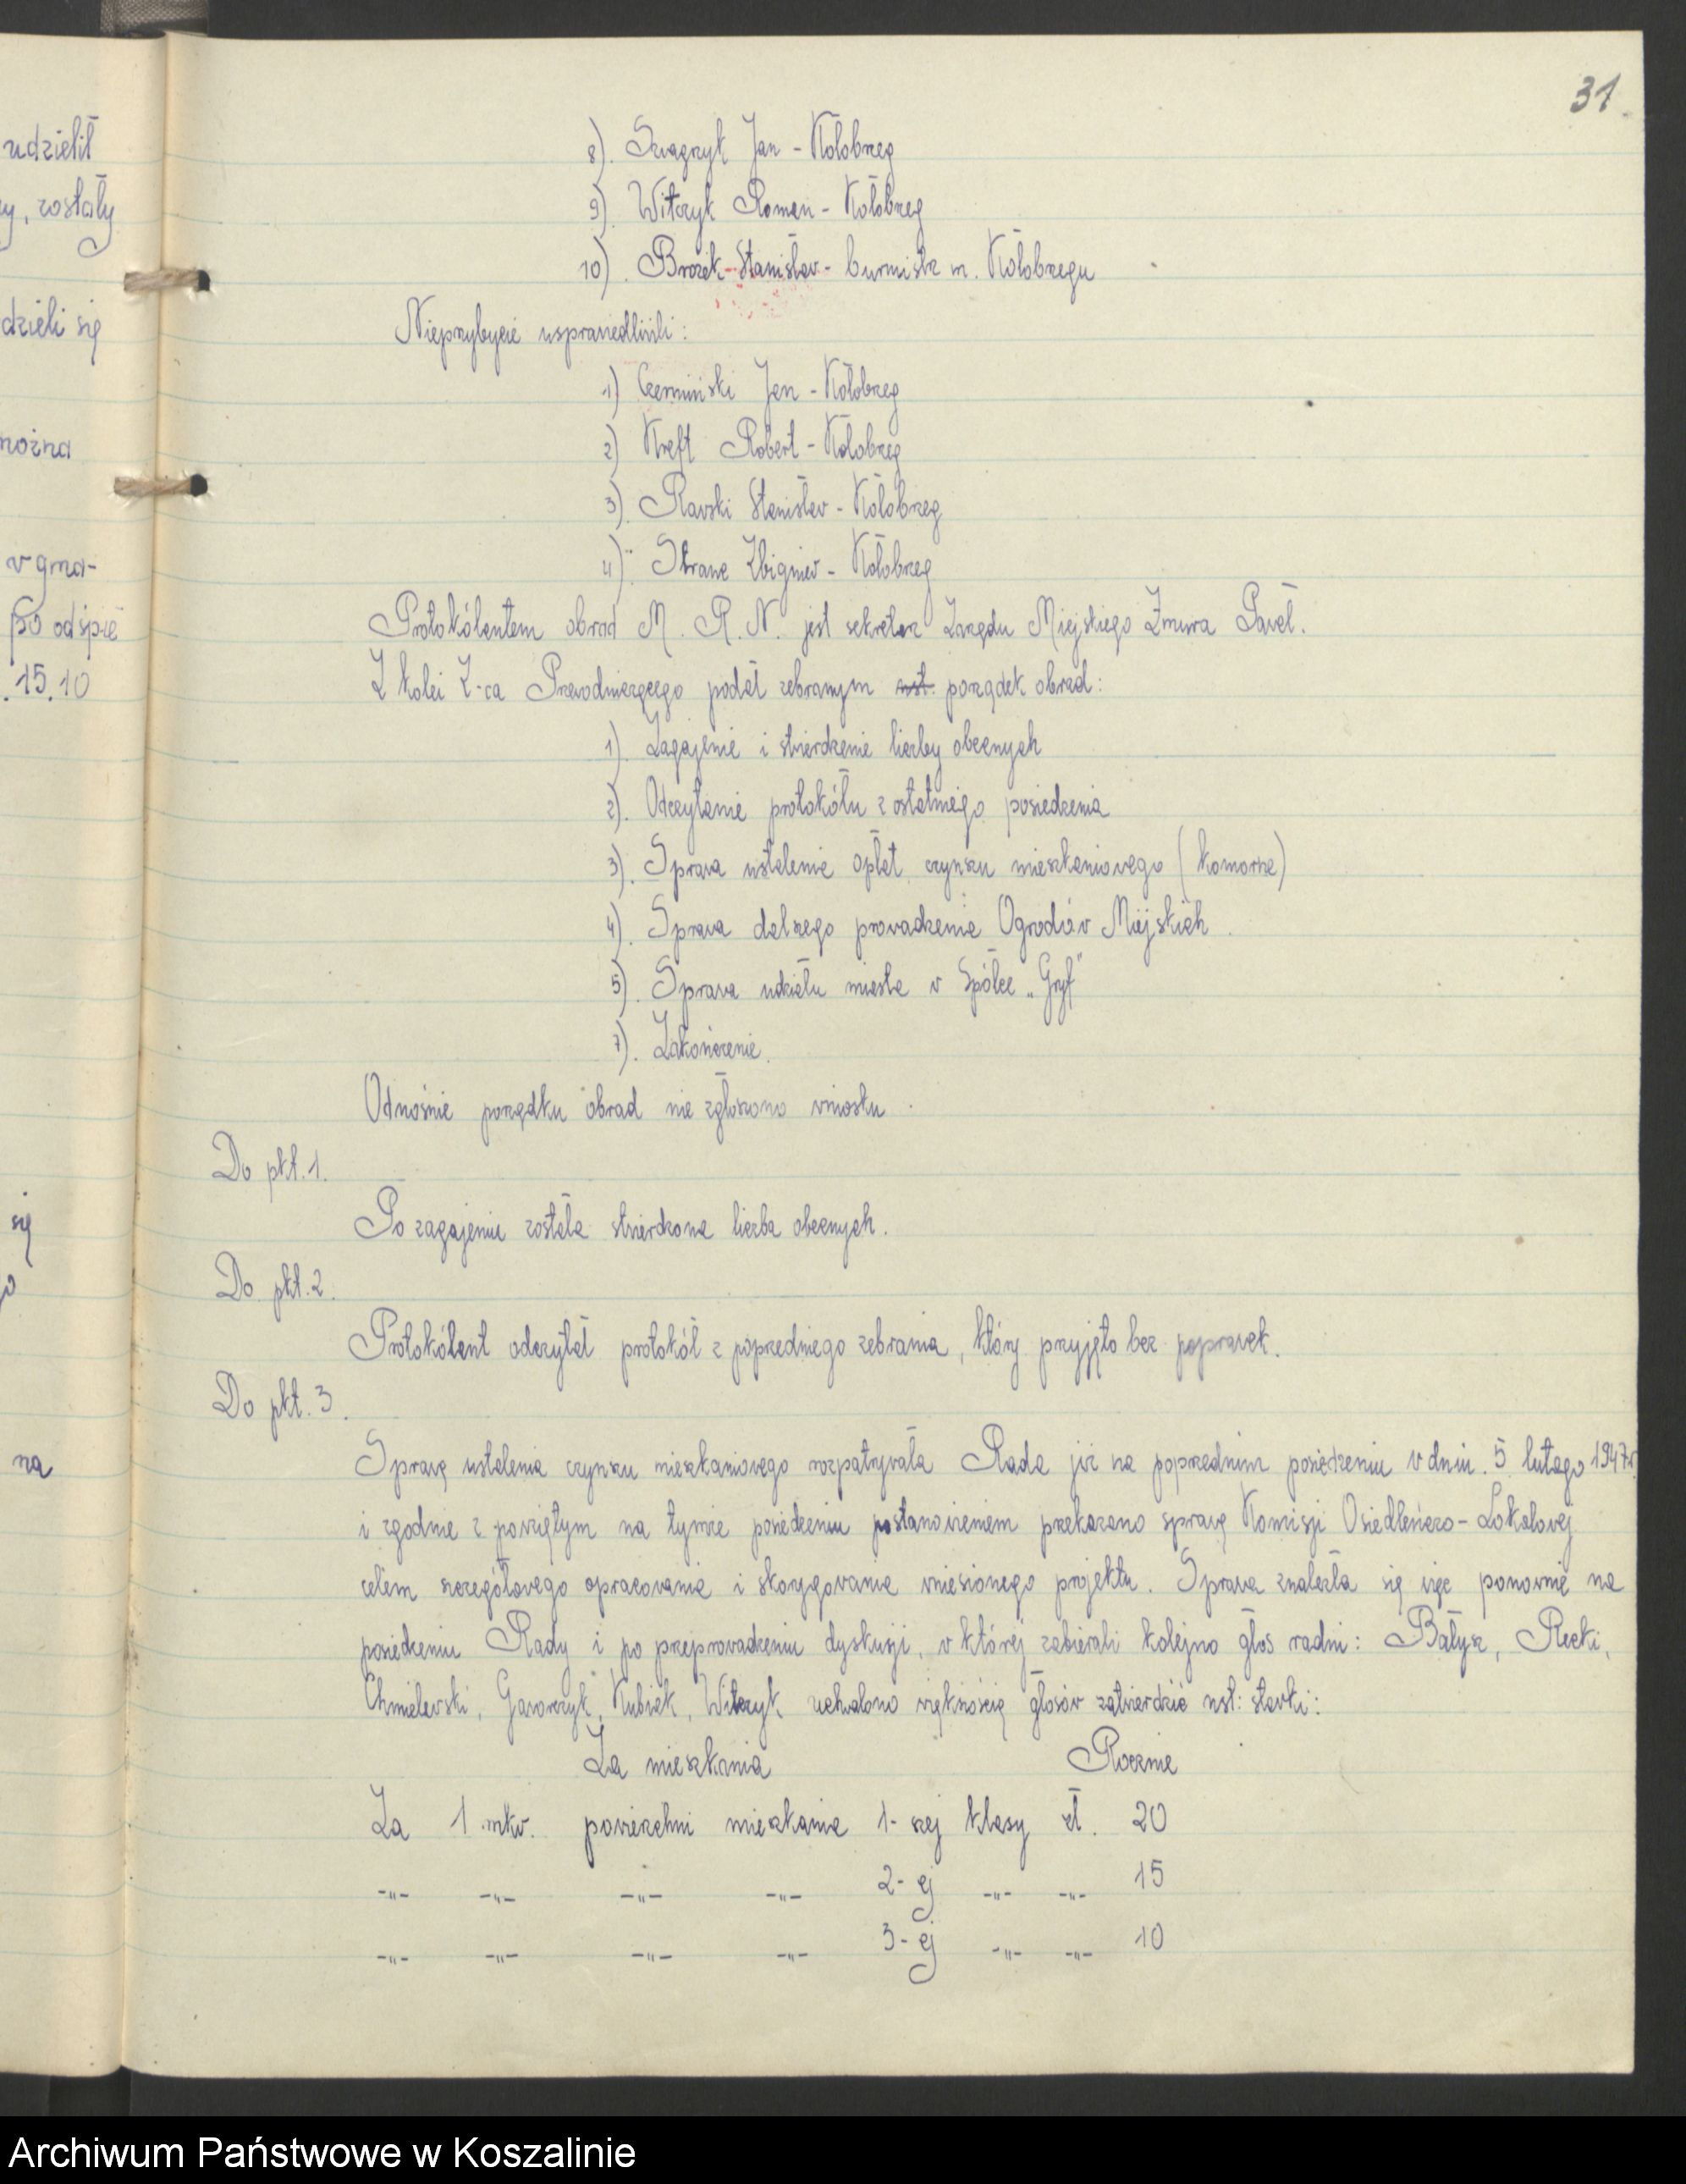 31
udzielił
ły, zostały
dzieli się
można
w gma-
po odśpie
15.10
się
go
na
8). Szwagrzyk Jan - Kołobrzeg
9) Witczyk Roman - Kołobrzeg
10). Brożek Stanisław - burmistrz m. Kołobrzegu
Nieprzybycie usprawiedliwili:
1) Czermiński Jan - Kołobrzeg
2) Kreft Robert - Kołobrzeg
3). Rawski Stanisław - Kołobrzeg
4). Zbigniew - Kołobrzeg
Protokólantem obrad M. R. N. jest sekretarz Zarządu Miejskiego Żmura Paweł.
Z kolei Z-ca Przewodniczącego podał zebranym nst. porządek obrad:
1). Zagajenie i stwierdzenie liczby obecnych
2). Odczytanie protokółu z ostatniego posiedzenia
3). Sprawa ustalenia opłat czynszu mieszkaniowego (komorne)
4). Sprawa dalszego prowadzenia Ogrodów Miejskich.
5). Sprawa udziału miasta w Spółce „Gryf"
7). Zakończenie.
Odnośnie porządku obrad nie zgłoszono wniosku.
Do pkt. 1.
Po zagajeniu została stwierdzona liczba obecnych.
Do pkt. 2.
Protokólant odczytał protokół z poprzedniego zebrania, który przyjęto bez poprawek.
Do pkt. 3.
Sprawę ustalenia czynszu mieszkaniowego rozpatrywała Rada już na poprzednim posiedzeniu w dniu 5 lutego 1947r.
i zgodnie z powziętym na tymże posiedzeniu postanowieniem przekazano sprawę Komisji Osiedleńczo-Lokalowej
celem szczegółowego opracowania i skorygowania wniesionego projektu. Sprawa znalazła się więc ponownie na
posiedzeniu Rady i po przeprowadzeniu dyskusji, w której zabierali kolejno głos radni: Bałysz, Recki,
Chmielewski, Gaworczyk, Kubiak, Witczyk uchwalono większością głosów zatwierdzić nst: stawki:
Za mieszkania Rocznie
Za 1 mkw. powierzchni mieszkania 1-szej klasy zł. 20
-"- -"- -"- -"- 2-ej -"- -"- 15
-"- -"- -"- -"- 3-ej -"- -"- 10
Archiwum Państwowe w Koszalinie